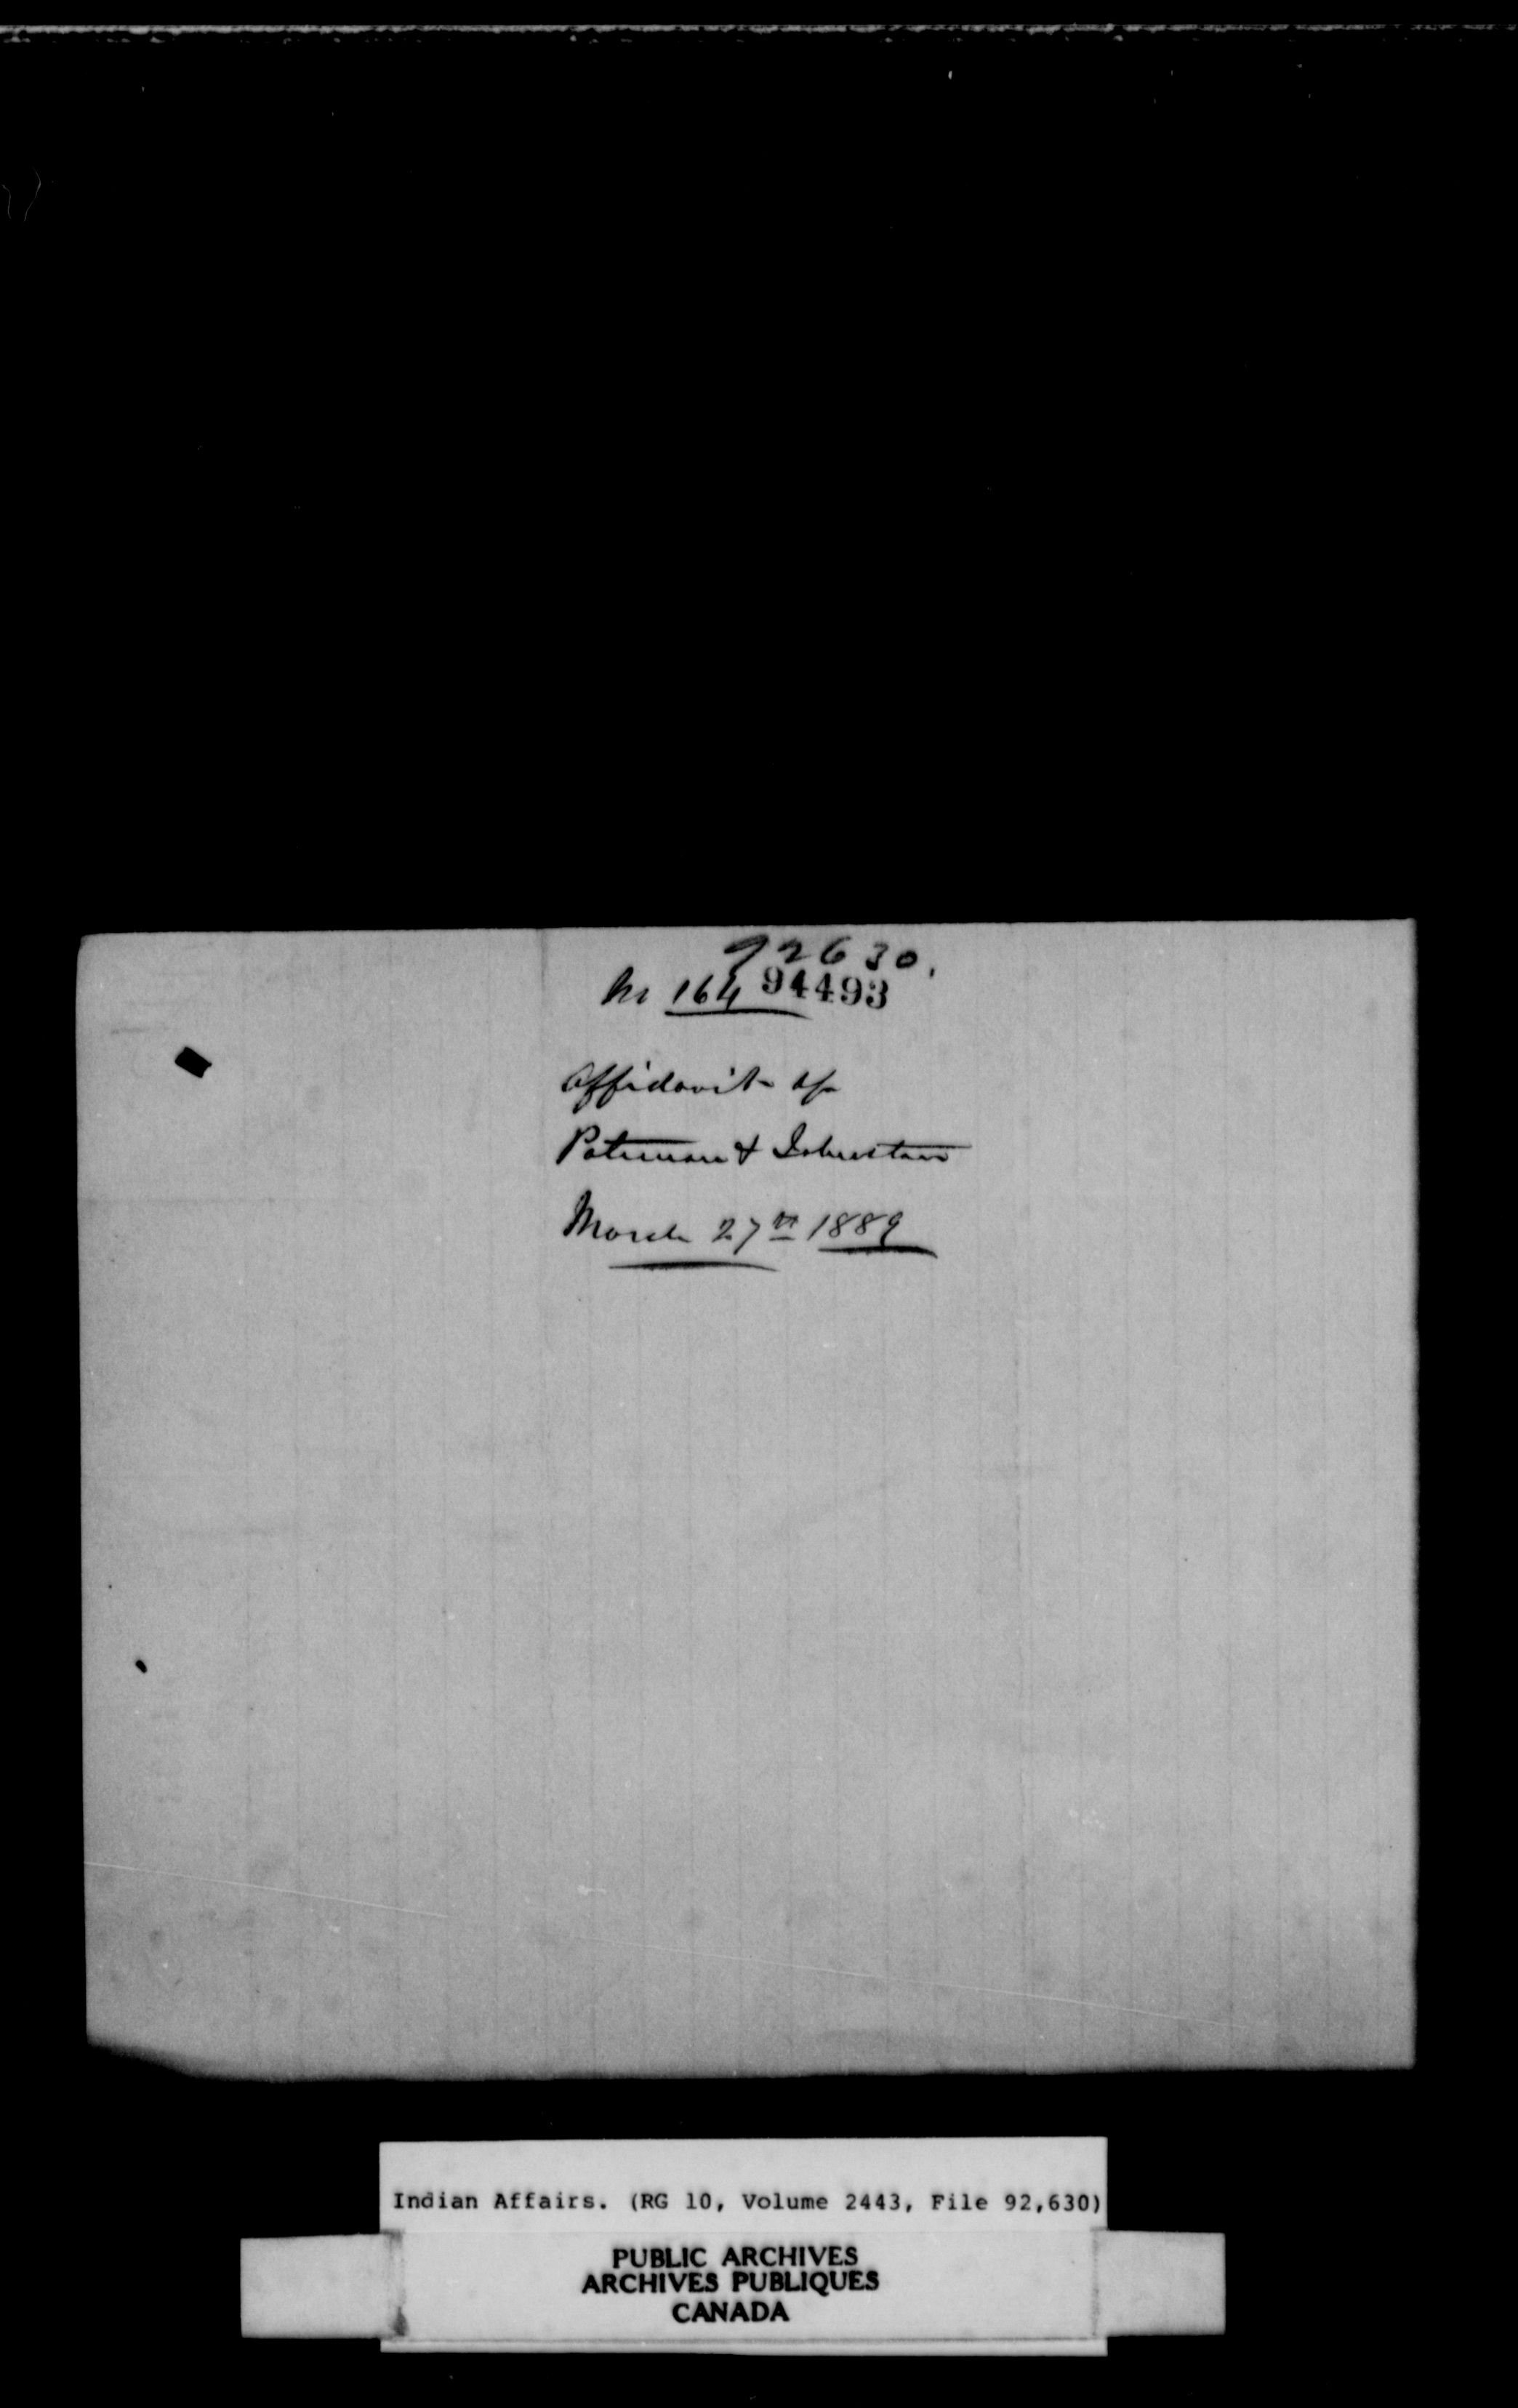 92630.
No 164 94493
Affidavit of
& Johnston
March 27th 1889
Indian Affairs. (RG 10, Volume 2443, File 92,630)
PUBLIC ARCHIVES
ARCHIVES PUBLIQUES
CANADA